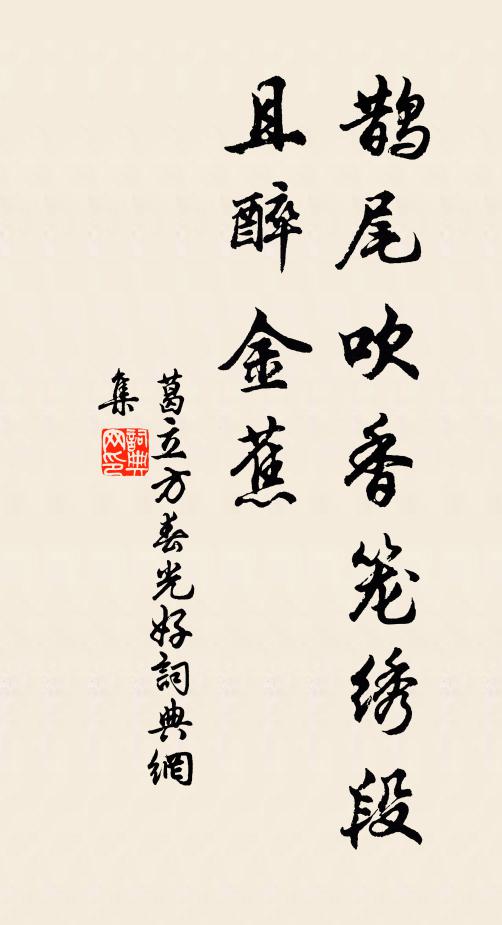 鹊尾吹香笼绣段
且醉金蕉
葛立方春光好詞典網
集
詞典网印